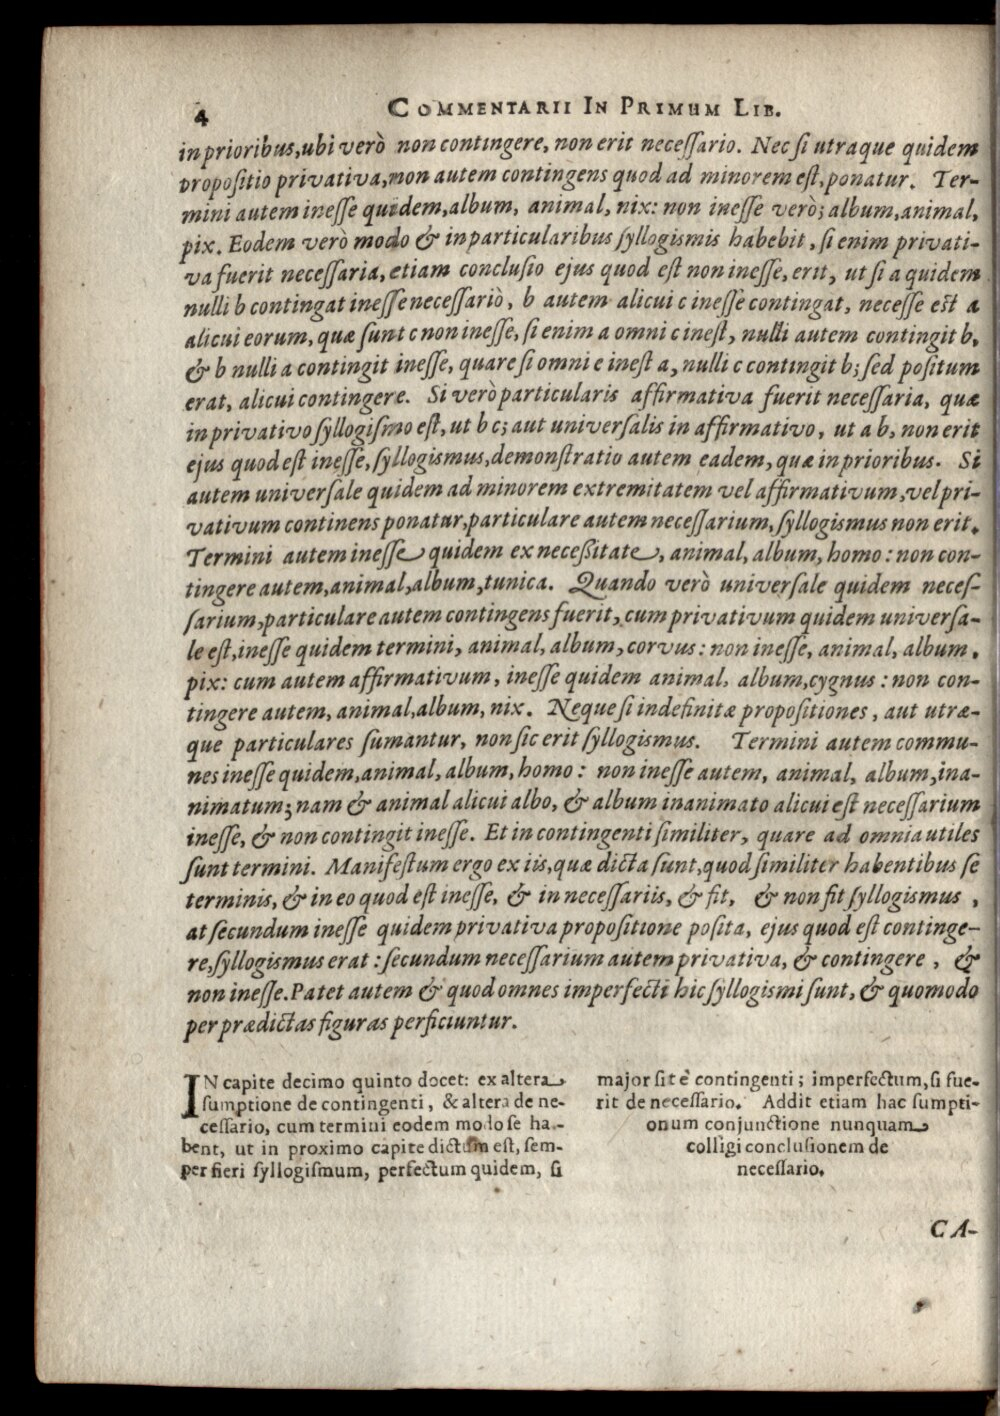 4 COMMENTARII IN PRIMUM LIB.
in prioribus, ubi verò non contingere, non erit necessario. Nec si utraque quidem
propositio privativa, non autem contingens quod ad minorem est, ponatur. Ter-
mini autem inesse quidem, album, animal, nix: non inesse verò; album, animal,
pix. Eodem verò modo & in particularibus syllogismis habebit, si enim privati-
va fuerit necessaria, etiam conclusio ejus quod est non inesse, erit, ut si a quidem
nulli b contingat inesse necessariò, b autem alicui c inesse contingat, necesse est a
alicui eorum, quæ sunt c non inesse, si enim a omni c inest, nulli autem contingit b,
& b nulli a contingit inesse, quare si omni e inest a, nulli c contingit b; sed positum
erat, alicui contingere. Si verò particularis affirmativa fuerit necessaria, quæ
in privativo syllogismo est, ut b c; aut universalis in affirmativo, ut a b, non erit
ejus quod est inesse, syllogismus, demonstratio autem eadem, quæ in prioribus. Si
autem universale quidem ad minorem extremitatem vel affirmativum, vel pri-
vativum continens ponatur, particulare autem necessarium, syllogismus non erit.
Termini autem inesse quidem ex necessitate, animal, album, homo: non con-
tingere autem, animal, album, tunica. Quando verò universale quidem neces-
sarium, particulare autem contingens fuerit, cum privativum quidem universa-
le est, inesse quidem termini, animal, album, corvus: non inesse, animal, album,
pix: cum autem affirmativum, inesse quidem animal, album, cygnus: non con-
tingere autem, animal, album, nix. Neque si indefinitæ propositiones, aut utræ-
que particulares sumantur, non sic erit syllogismus. Termini autem commu-
nes inesse quidem, animal, album, homo: non inesse autem, animal, album, ina-
nimatum; nam & animal alicui albo, & album inanimato alicui est necessarium
inesse, & non contingit inesse. Et in contingenti similiter, quare ad omnia utiles
sunt termini. Manifestum ergo ex iis, quæ dicta sunt, quod similiter habentibus se
terminis, & in eo quod est inesse, & in necessariis, & fit, & non fit syllogismus,
at secundum inesse quidem privativa propositione posita, ejus quod est continge-
re, syllogismus erat: secundum necessarium autem privativa, & contingere, &
non inesse. Patet autem & quod omnes imperfecti hic syllogismi sunt, & quomodo
per prædictas figuras perficiuntur.
IN capite decimo quinto docet: ex altera
sumptione de contingenti, & altera de ne-
cessario, cum termini eodem modo se ha-
bent, ut in proximo capite dictum est, sem-
per fieri syllogismum, perfectum quidem, si
major sit è contingenti; imperfectum, si fue-
rit de necessario. Addit etiam hac sumpti-
onum conjunctione nunquam
colligi conclusionem de
necessario.
CA-